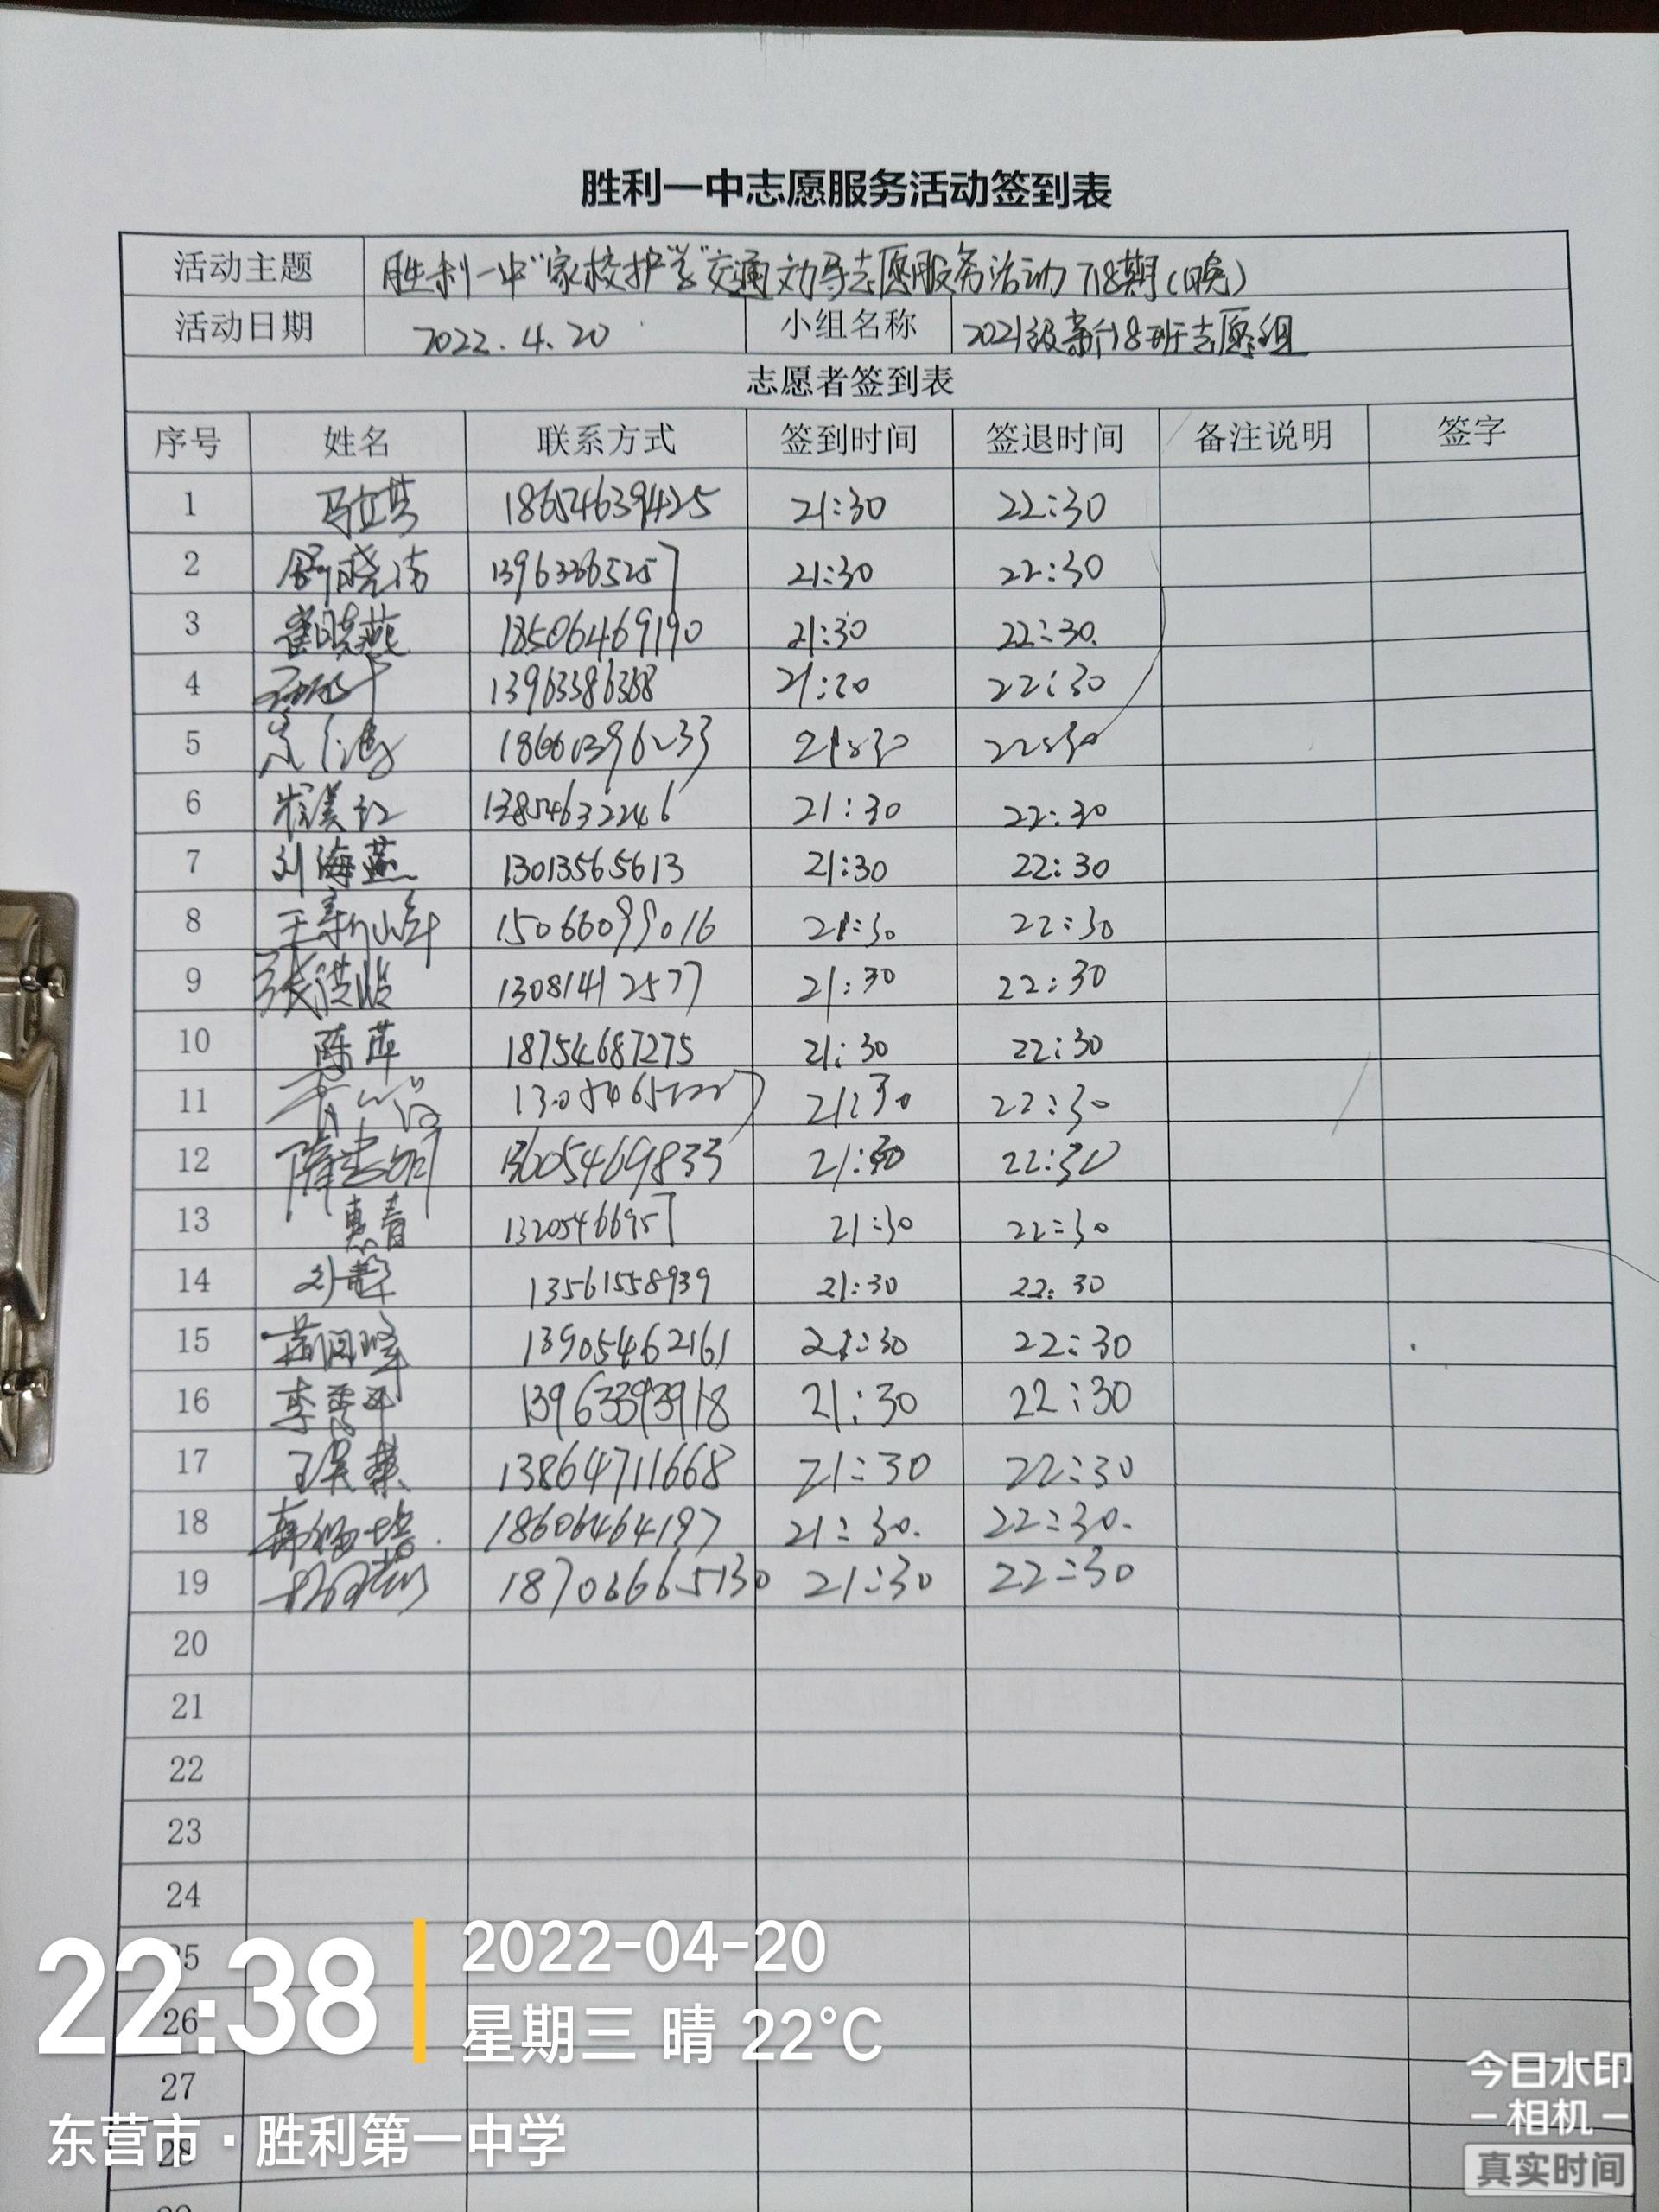 胜利一中志愿服务活动签到表
活动主题 胜利一中“家校护学”交通劝导志愿服务活动718期(晚)
活动日期 2022.4.20 小组名称 2021级新118班志愿组
志愿者签到表
序号 姓名 联系方式 签到时间 签退时间 备注说明 签字
1 18654639425 21:30 22:30
2 13963365257 21:30 22:30
3 崔晓燕 18506469190 21:30 22:30.
4 13963386368 21:30 22:30
5 21:30 22:30
6 13854632246 21:30 22:30
7 刘海燕 13013565613 21:30 22:30
8 王新峰 15066099016 21:30 22:30
9 13081412577 21:30 22:30
10 陈萍 18754687275 21:30 22:30
11 21:30 22:30
12 13605469833 21:30 22:30
13 惠青 13205466957 21:30 22:30
14 刘静 13561558939 21:30 22:30
15 13905462161 21:30 22:30
16 李秀平 13963393918 21:30 22:30
17 13864711668 21:30 22:30
18 18606464197 21:30. 22:30.
19 18706665130 21:30 22:30
20
21
22
23
24
25
26
27
28
22:38
2022-04-20
星期三 晴 22°C
东营市·胜利第一中学
今日水印
相机
真实时间